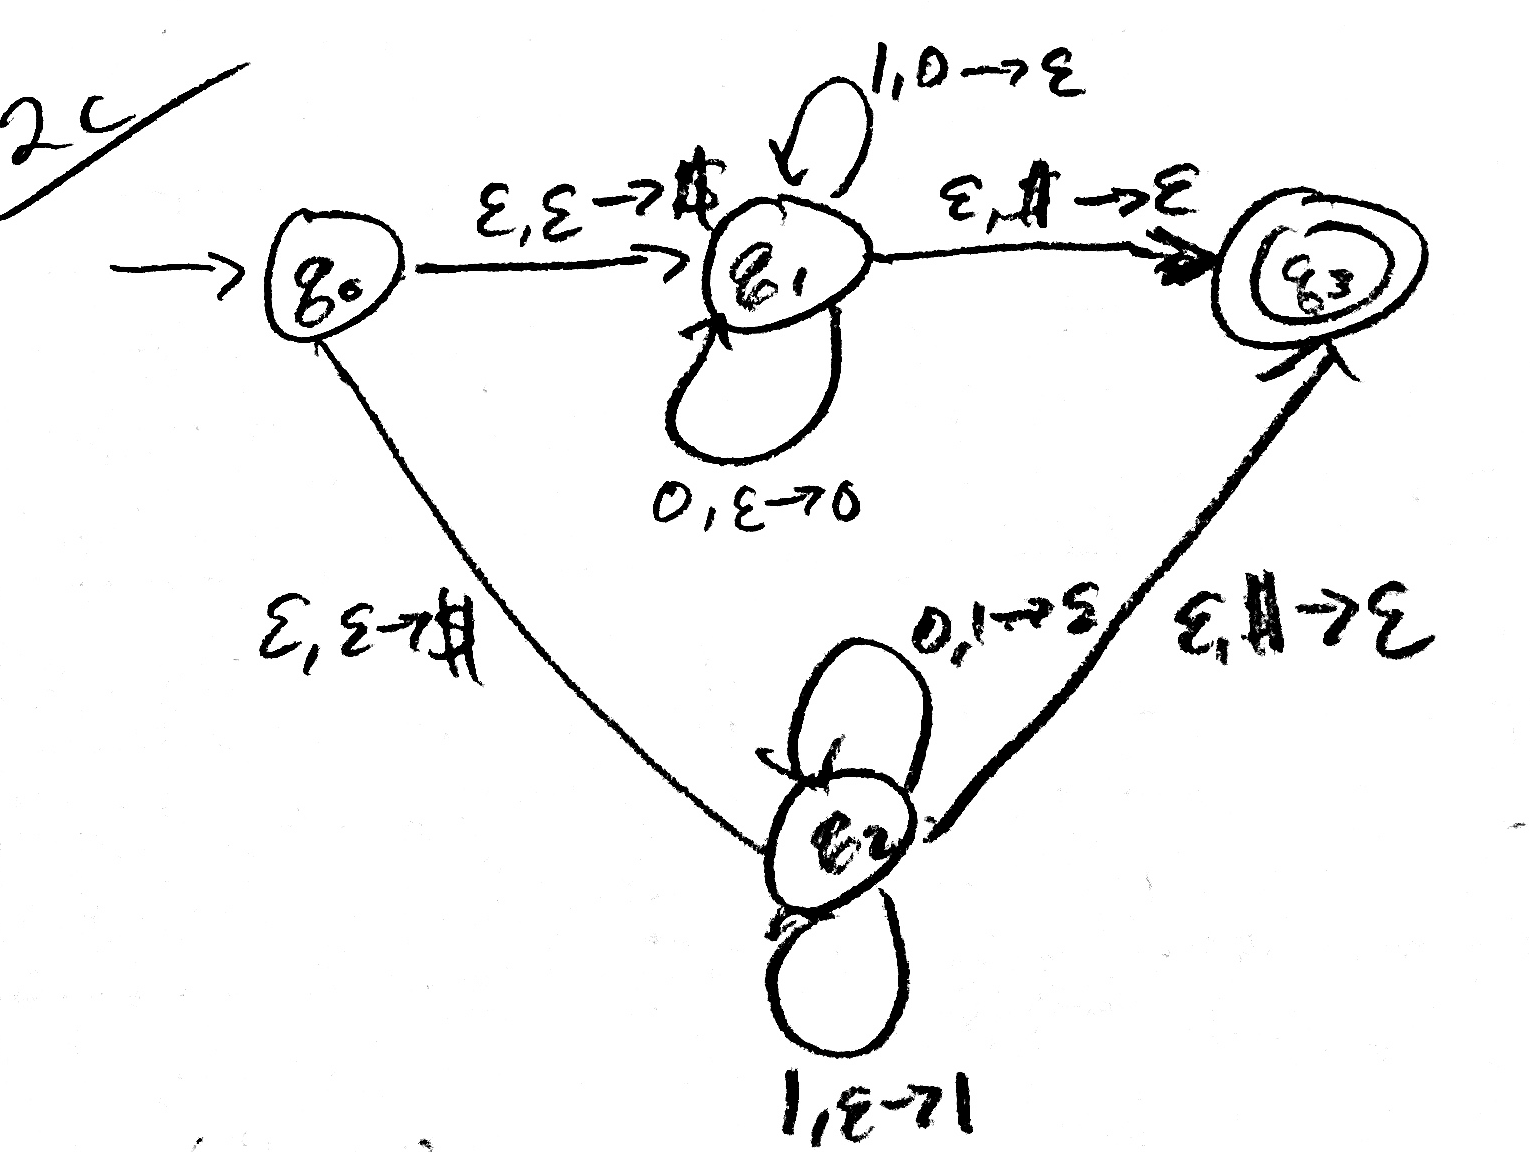 2c
1,0→ε
ε,ε→$
ε,$→ε
q0
q1
q3
0,ε→0
ε,ε→$
0,1→ε
ε,$→ε
q2
1,ε→1